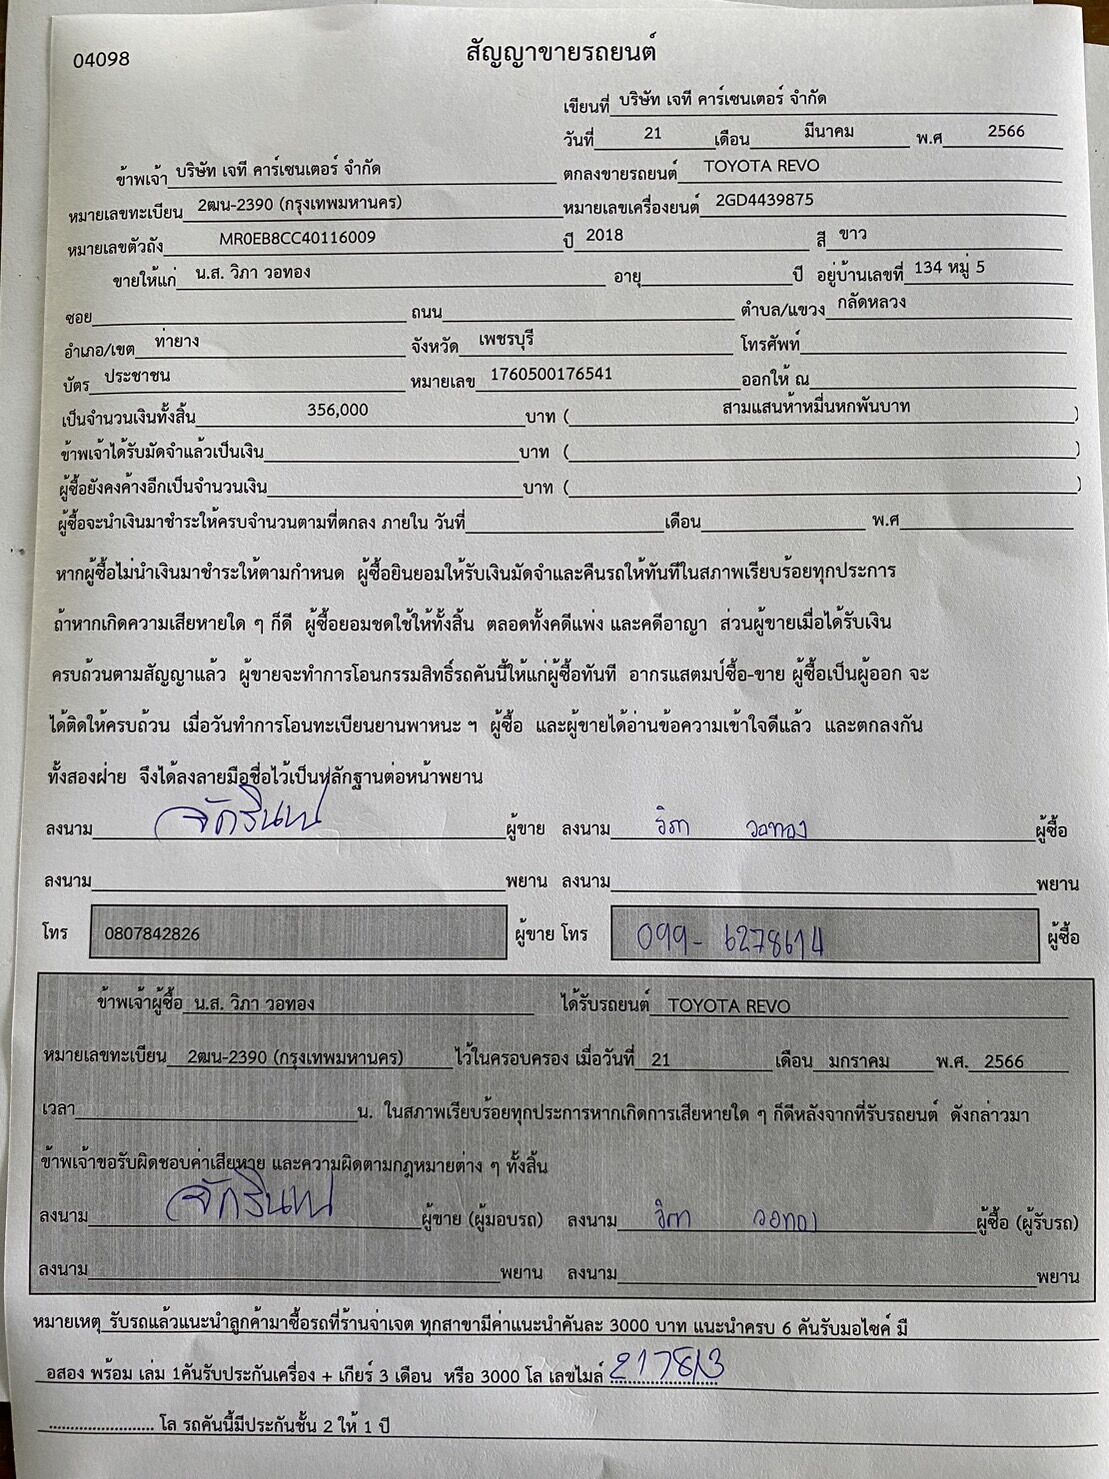 04098
สัญญาขายรถยนต์
เขียนที่ บริษัท เจที คาร์เซนเตอร์ จำกัด
วันที่ 21 เดือน มีนาคม พ.ศ 2566
ข้าพเจ้า บริษัท เจที คาร์เซนเตอร์ จำกัด ตกลงขายรถยนต์ TOYOTA REVO
หมายเลขทะเบียน 2ฒน-2390 (กรุงเทพมหานคร) หมายเลขเครื่องยนต์ 2GD4439875
หมายเลขตัวถัง MR0EB8CC40116009 ปี 2018 สี ขาว
ขายให้แก่ น.ส. วิภา วอทอง อายุ ปี อยู่บ้านเลขที่ 134 หมู่ 5
ซอย ถนน ตำบล/แขวง กลัดหลวง
อำเภอ/เขต ท่ายาง จังหวัด เพชรบุรี โทรศัพท์
บัตร ประชาชน หมายเลข 1760500176541 ออกให้ ณ
เป็นจำนวนเงินทั้งสิ้น 356,000 บาท ( สามแสนห้าหมื่นหกพันบาท )
ข้าพเจ้าได้รับมัดจำแล้วเป็นเงิน บาท ( )
ผู้ซื้อยังคงค้างอีกเป็นจำนวนเงิน บาท ( )
ผู้ซื้อจะนำเงินมาชำระให้ครบจำนวนตามที่ตกลง ภายใน วันที่ เดือน พ.ศ
หากผู้ซื้อไม่นำเงินมาชำระให้ตามกำหนด ผู้ซื้อยินยอมให้รับเงินมัดจำและคืนรถให้ทันทีในสภาพเรียบร้อยทุกประการ
ถ้าหากเกิดความเสียหายใด ๆ ก็ดี ผู้ซื้อยอมชดใช้ให้ทั้งสิ้น ตลอดทั้งคดีแพ่ง และคดีอาญา ส่วนผู้ขายเมื่อได้รับเงิน
ครบถ้วนตามสัญญาแล้ว ผู้ขายจะทำการโอนกรรมสิทธิ์รถคันนี้ให้แก่ผู้ซื้อทันที อากรแสตมป์ซื้อ-ขาย ผู้ซื้อเป็นผู้ออก จะ
ได้ติดให้ครบถ้วน เมื่อวันทำการโอนทะเบียนยานพาหนะ ฯ ผู้ซื้อ และผู้ขายได้อ่านข้อความเข้าใจดีแล้ว และตกลงกัน
ทั้งสองฝ่าย จึงได้ลงลายมือชื่อไว้เป็นหลักฐานต่อหน้าพยาน
ลงนาม ผู้ขาย ลงนาม วิภา วอทอง ผู้ซื้อ
ลงนาม พยาน ลงนาม พยาน
โทร 0807842826 ผู้ขาย โทร 099-6278614 ผู้ซื้อ
ข้าพเจ้าผู้ซื้อ น.ส. วิภา วอทอง ได้รับรถยนต์ TOYOTA REVO
หมายเลขทะเบียน 2ฒน-2390 (กรุงเทพมหานคร) ไว้ในครอบครอง เมื่อวันที่ 21 เดือน มกราคม พ.ศ. 2566
เวลา น. ในสภาพเรียบร้อยทุกประการหากเกิดการเสียหายใด ๆ ก็ดีหลังจากที่รับรถยนต์ ดังกล่าวมา
ข้าพเจ้าขอรับผิดชอบค่าเสียหาย และความผิดตามกฎหมายต่าง ๆ ทั้งสิ้น
ลงนาม ผู้ขาย (ผู้มอบรถ) ลงนาม วิภา วอทอง ผู้ซื้อ (ผู้รับรถ)
ลงนาม พยาน ลงนาม พยาน
หมายเหตุ รับรถแล้วแนะนำลูกค้ามาซื้อรถที่ร้านจ่าเจต ทุกสาขามีค่าแนะนำคันละ 3000 บาท แนะนำครบ 6 คันรับมอไซค์ มี
อสอง พร้อม เล่ม 1คันรับประกันเครื่อง + เกียร์ 3 เดือน หรือ 3000 โล เลขไมล์
........................ โล รถคันนี้มีประกันชั้น 2 ให้ 1 ปี